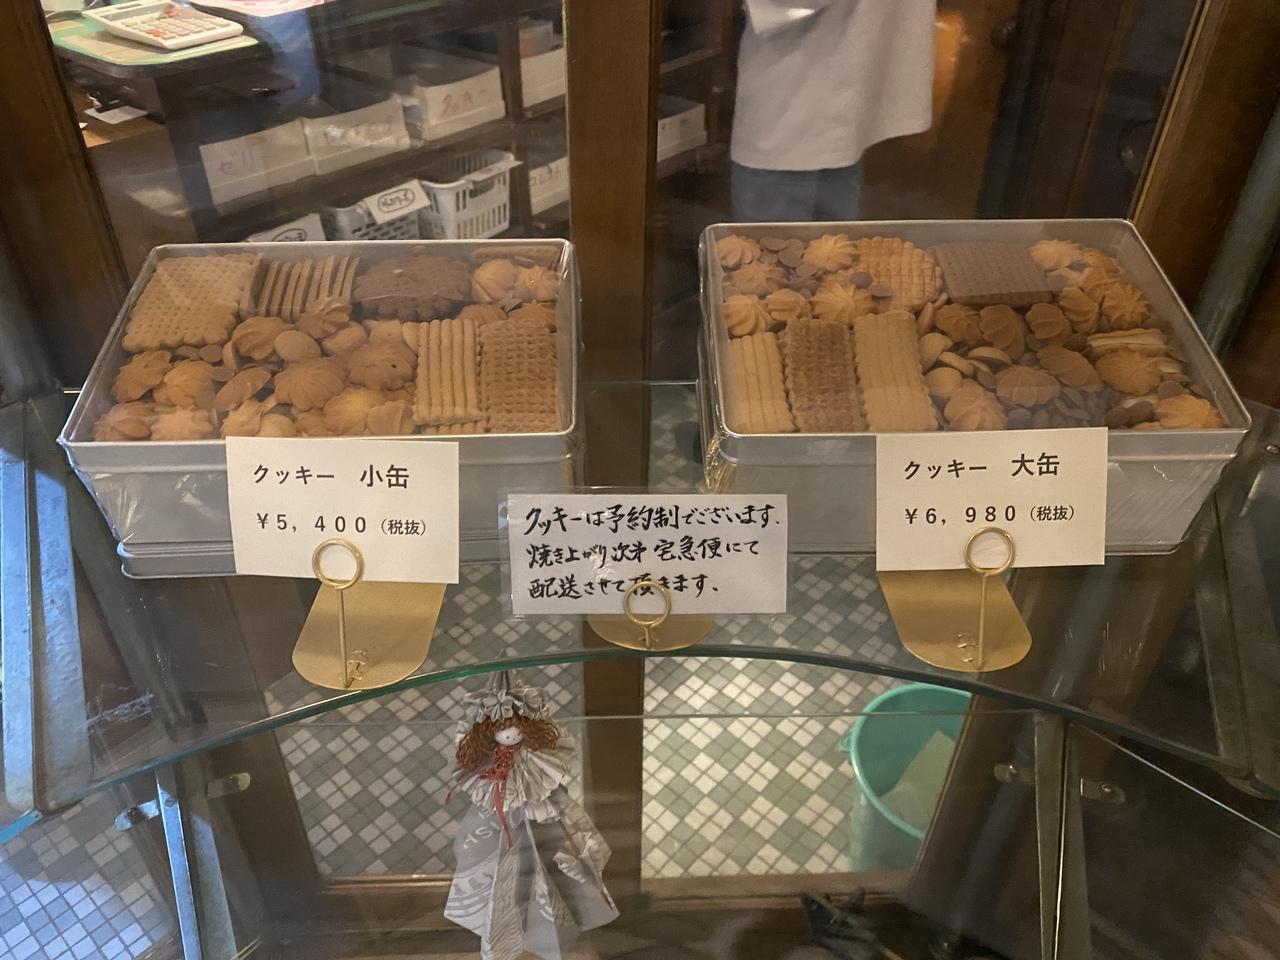 ゼリー
クッキー
クッキー 小缶
￥5,400（税抜）
クッキーは予約制でございます.
焼き上がり次第宅急便にて
配送させて頂きます.
クッキー 大缶
￥6,980（税抜）